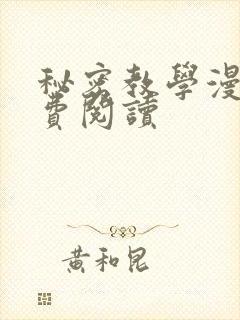 秘密教學漫
費閱讀
黃和昆